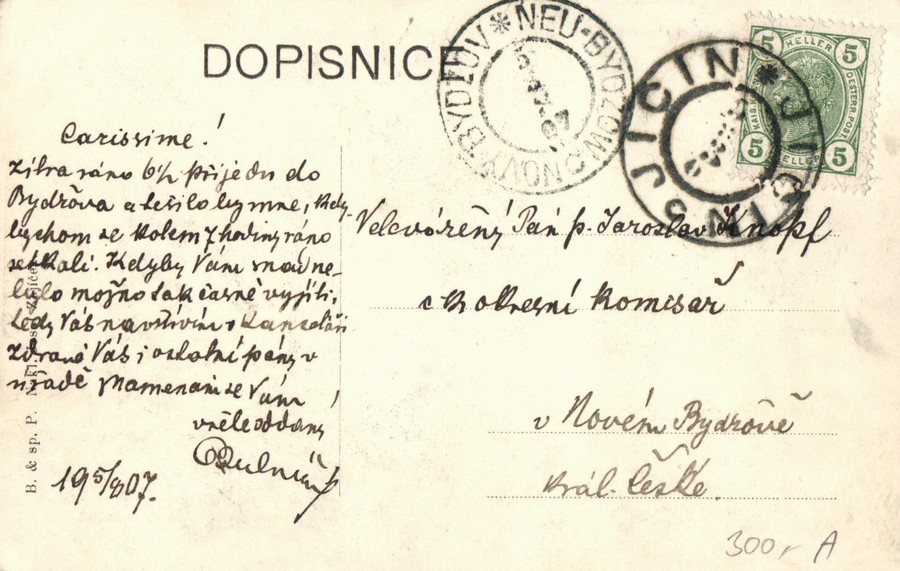 DOPISNICE
NOVÝ BYDŽOV * NEU-BYDŽOW
JIČIN * JIČIN
5 HELLER 5
KAIS. KÖN. OESTERR. POST.
5 HELLER 5
Carissime!
Zítra ráno 6½ přijedu do
Bydžova a těšilo by mne, kdy-
bychom se kolem 7 hodiny ráno
setkali. Kdyby Vám snad ne-
bylo možno tak časně vyjíti,
tedy Vás navštívím v kanceláři
Zdraví Vás i ostatní pány v
úřadě znamenám se Vám
vřele oddaný
19 5/8 07.
Velevážený Pán p. Jaroslav Knopf
c k okresní komisař
v Novém Bydžově
Král. České.
B. & sp. P.
300,- A